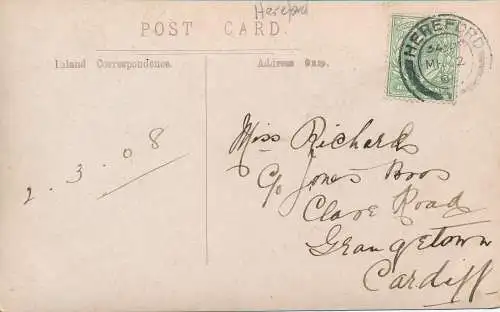 Hereford
POST CARD.
Inland Correspondence.
Address Only.
HEREFORD
2.3.08
Miss Richards
c/o Jones Bros
Clare Road
Grangetown
Cardiff